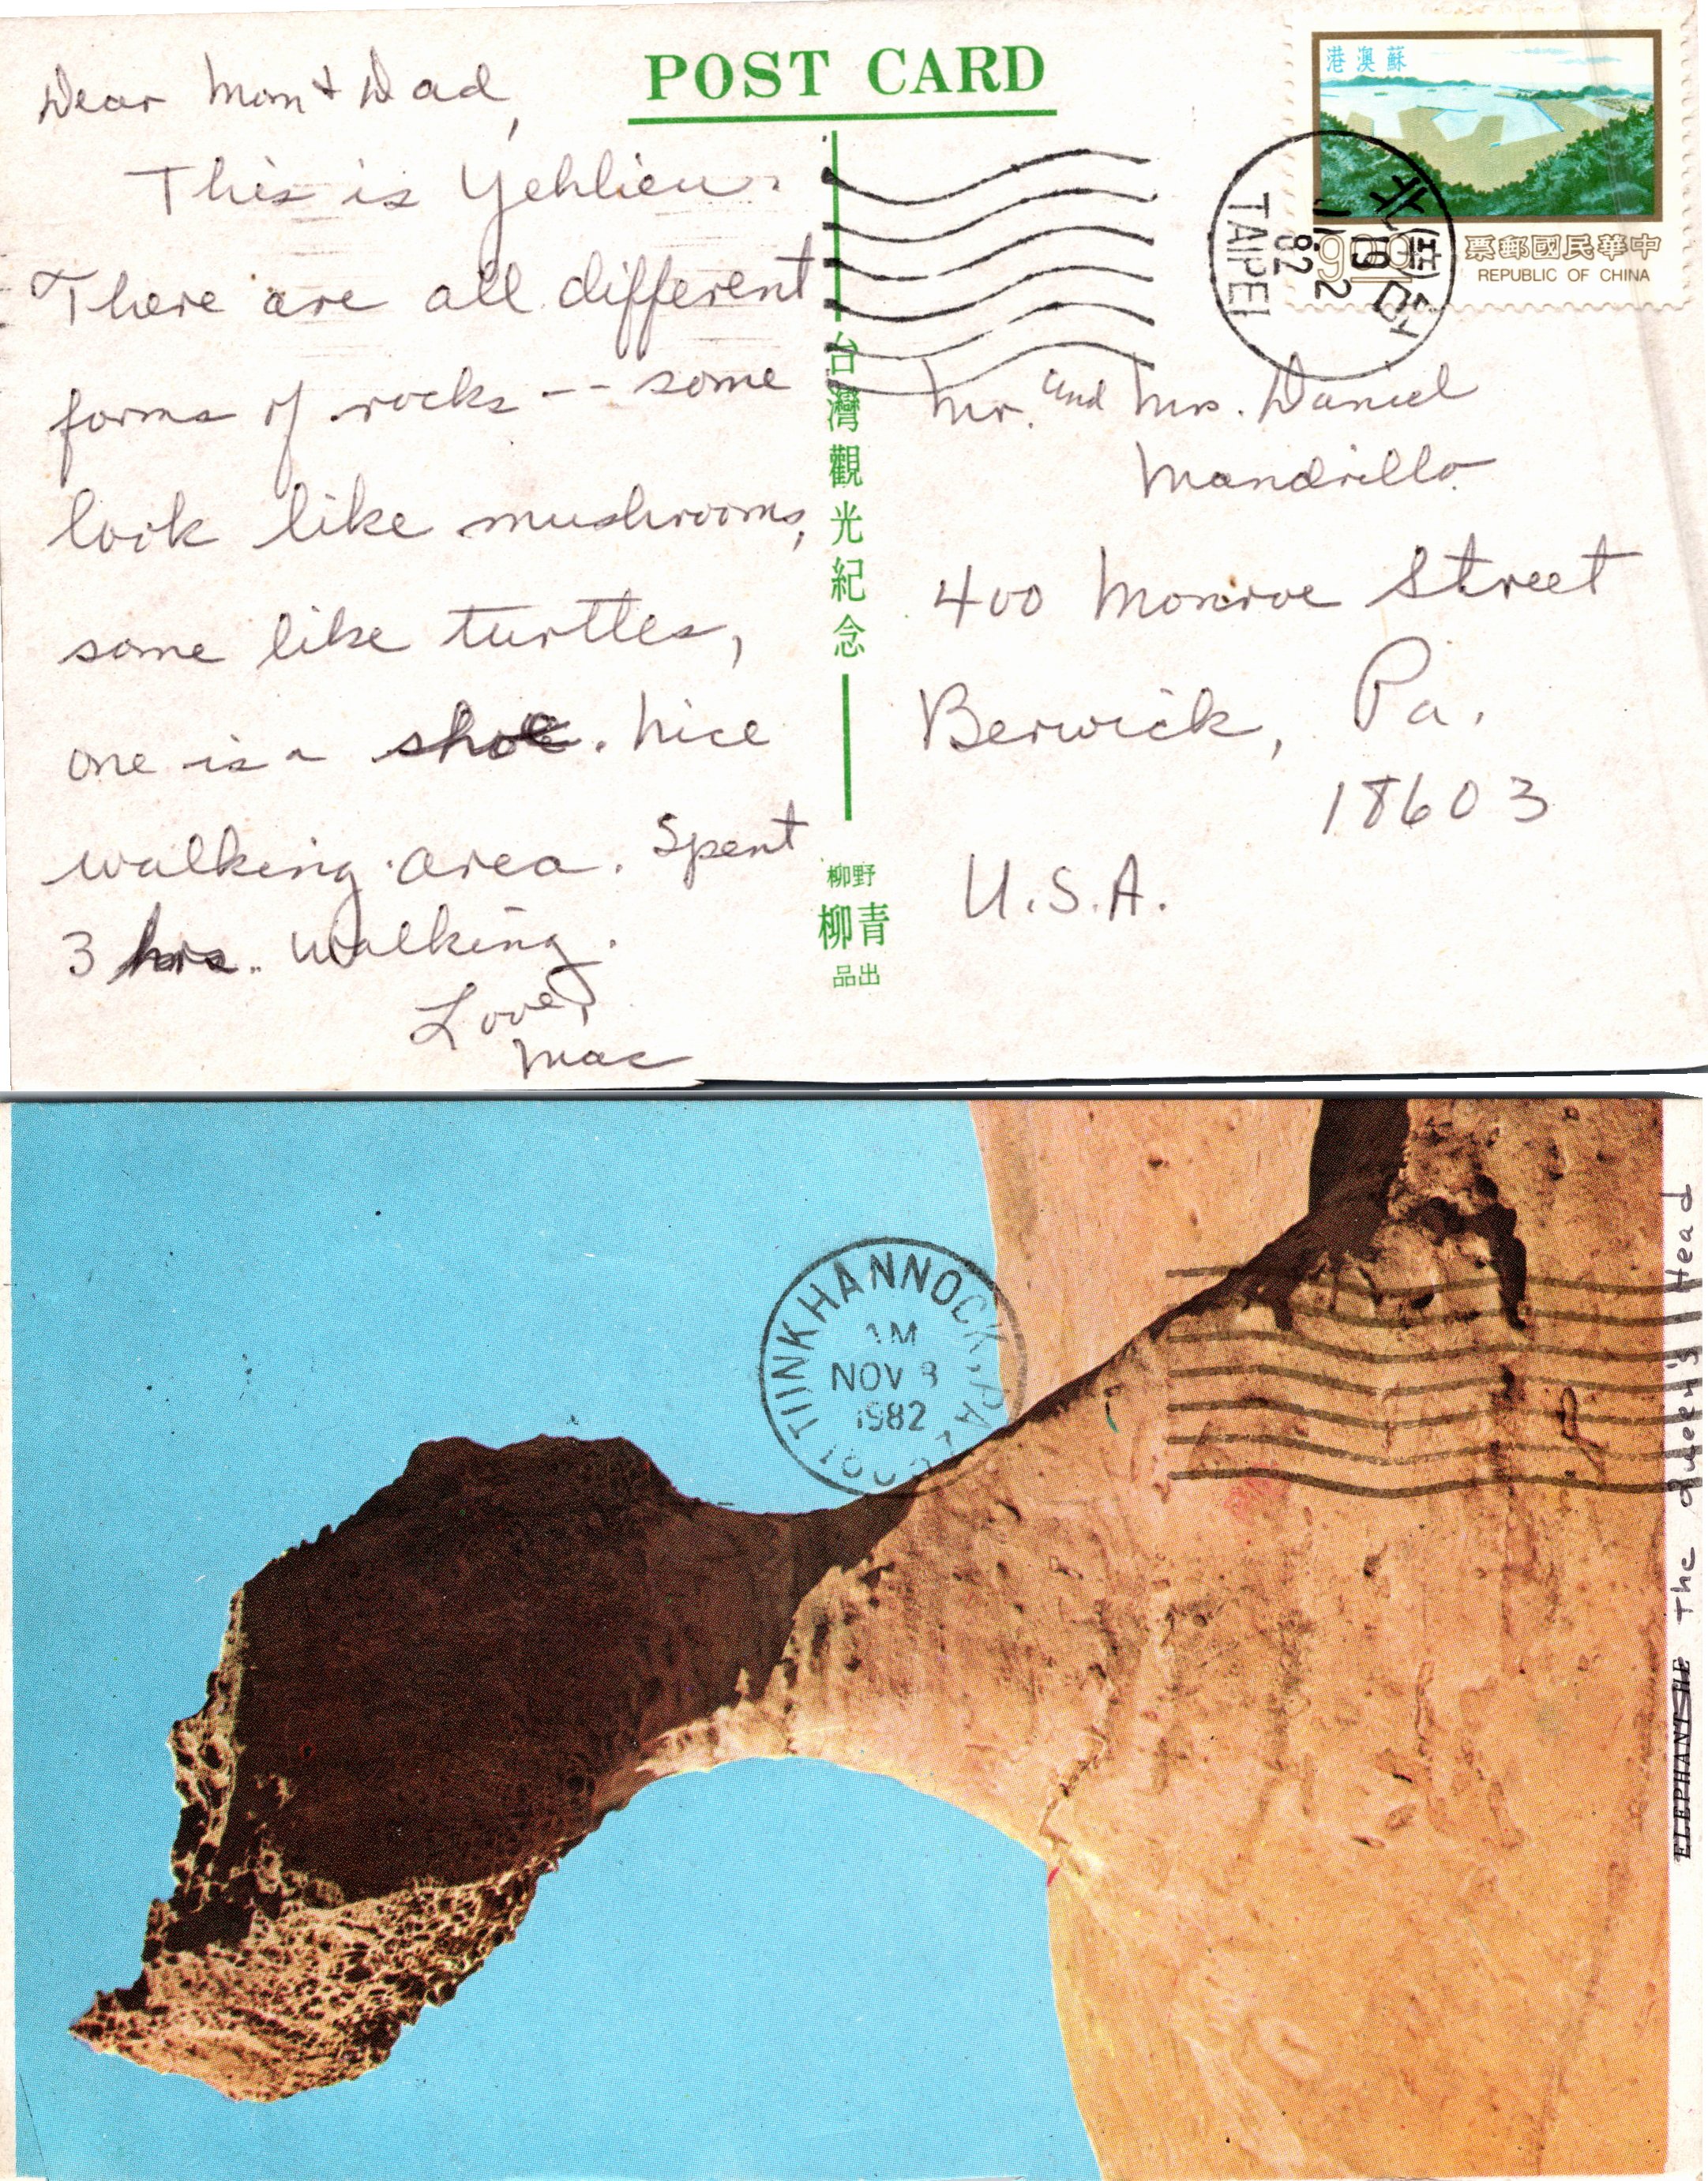 POST CARD
Dear Mom + Dad,
This is Yehlieu.
There are all different
forms of rocks -- some
look like mushrooms,
some like turtles,
one is a shoe. Nice
walking area. Spent
3 hrs. walking.
Love,
Mac
台灣觀光紀念
柳野
柳青
品出
港澳蘇
900
票郵國民華中
REPUBLIC OF CHINA
TAIPEI
82
19
Mr. and Mrs. Daniel
Mandrillo
400 Monroe Street
Berwick, Pa.
18603
U.S.A.
TUNKHANNOCK, PA
AM
NOV 8
1982
The Queen's Head